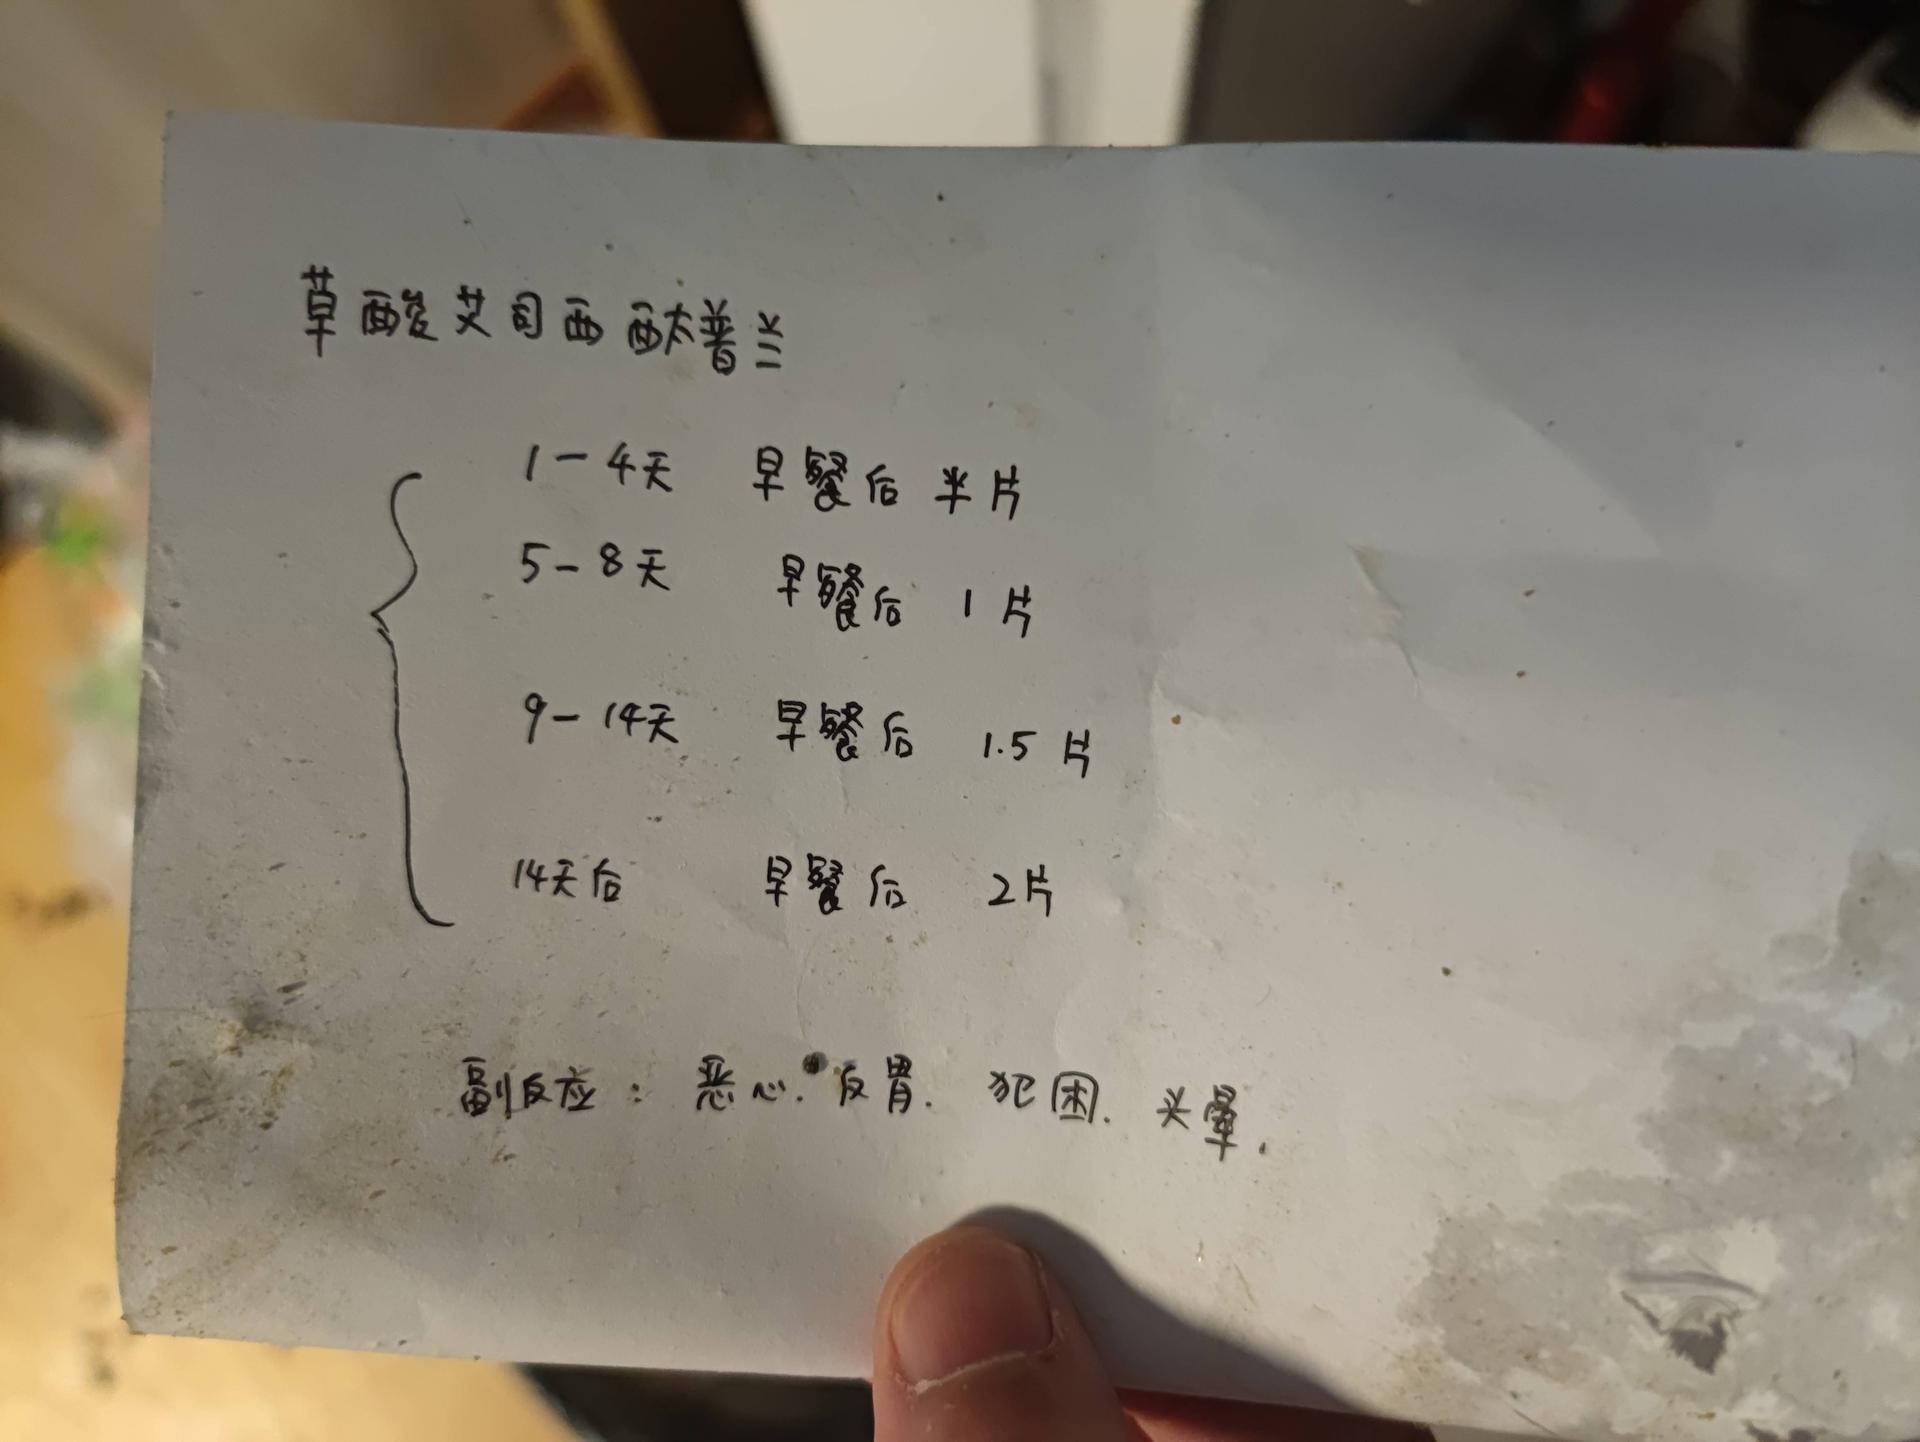 草酸艾司西酞普兰
1-4天 早餐后 半片
5-8天 早餐后 1片
9-14天 早餐后 1.5片
14天后 早餐后 2片
副反应：恶心.反胃.犯困.头晕.